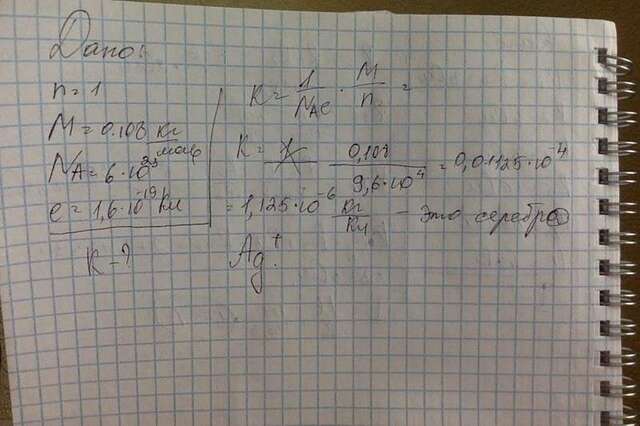 Дано:
n = 1
M = 0.108 кг/моль
NA = 6·10²³
e = 1,6·10⁻¹⁹ Кл
K - ?
K = 1/(NAe) · M/n =
K = 0,108/(9,6·10⁴) = 0,01125·10⁻⁴
= 1,125·10⁻⁶ кг/Кл - это серебро
Ag⁺